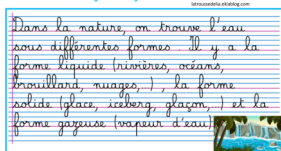 latroussedelia.eklablog.com
Dans la nature, on trouve l'eau
sous différentes formes. Il y a la
forme liquide (rivières, océans,
brouillard, nuages, .) , la forme
solide (glace, iceberg, glaçon, .) et la
forme gazeuse (vapeur d'eau)